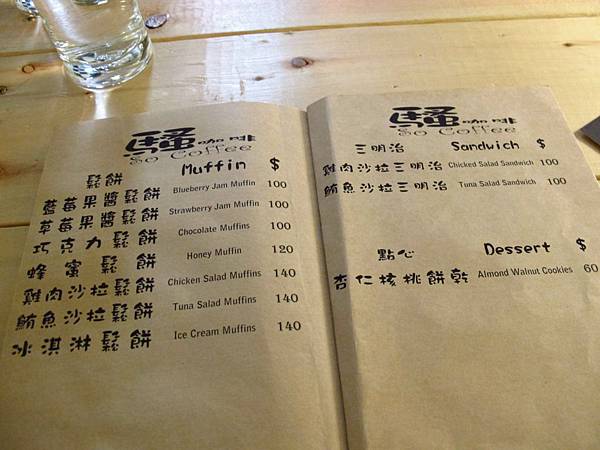 騷咖啡
So Coffee
鬆餅 Muffin $
藍莓果醬鬆餅 Blueberry Jam Muffin 100
草莓果醬鬆餅 Strawberry Jam Muffin 100
巧克力鬆餅 Chocolate Muffins 100
蜂蜜鬆餅 Honey Muffin 120
雞肉沙拉鬆餅 Chicken Salad Muffins 140
鮪魚沙拉鬆餅 Tuna Salad Muffins 140
冰淇淋鬆餅 Ice Cream Muffins 140
騷咖啡
So Coffee
三明治 Sandwich $
雞肉沙拉三明治 Chicked Salad Sandwich 100
鮪魚沙拉三明治 Tuna Salad Sandwich 100
點心 Dessert $
杏仁核桃餅乾 Almond Walnut Cookies 60